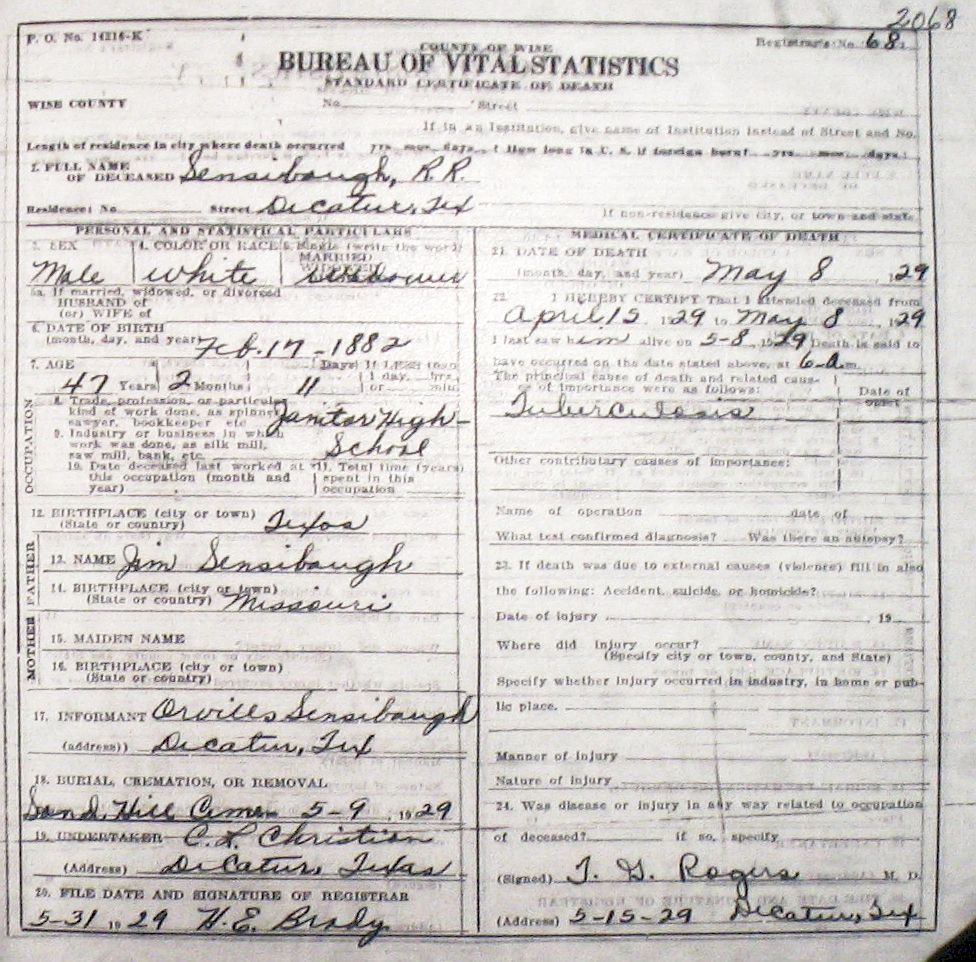 2068
P. O. No. 14216-K
Registrar's No. 68
COUNTY OF WISE
BUREAU OF VITAL STATISTICS
STANDARD CERTIFICATE OF DEATH
WISE COUNTY No. Street
If in an Institution, give name of Institution instead of Street and No.
Length of residence in city where death occurred yrs. mos. days. How long in U. S. if foreign born? yrs. mos. days.
2. FULL NAME
OF DECEASED Sensibaugh, R.R.
Residence: No. Street Decatur, Tex
If non-residence give city, or town and state.
PERSONAL AND STATISTICAL PARTICULARS
3. SEX 4. COLOR OR RACE 5. Single (write the word)
MARRIED
Male White Widower
5a. If married, widowed, or divorced
HUSBAND of
(or) WIFE of
6. DATE OF BIRTH
(month, day, and year) Feb. 17 - 1882
7. AGE Days If LESS than
1 day, hrs.
47 Years 2 Months 11 or min.
OCCUPATION
8. Trade, profession, or particular
kind of work done, as spinner,
sawyer, bookkeeper etc. Janitor High-
9. Industry or business in which
work was done, as silk mill,
saw mill, bank, etc. School
10. Date deceased last worked at
this occupation (month and
year)
11. Total time (years)
spent in this
occupation
12. BIRTHPLACE (city or town)
(State or country) Texas
FATHER
13. NAME Jim Sensibaugh
14. BIRTHPLACE (city or town)
(State or country) Missouri
MOTHER
15. MAIDEN NAME
16. BIRTHPLACE (city or town)
(State or country)
17. INFORMANT Orville Sensibaugh
(address) Decatur, Tex
18. BURIAL, CREMATION, OR REMOVAL
Sand Hill Cem 5-9, 1929
19. UNDERTAKER C. L. Christian
(Address) Decatur, Texas
20. FILE DATE AND SIGNATURE OF REGISTRAR
5-31 1929 H. E. Brady
MEDICAL CERTIFICATE OF DEATH
21. DATE OF DEATH
(month, day, and year) May 8, 29
22. I HEREBY CERTIFY That I attended deceased from
April 15 1929 to May 8, 1929
I last saw him alive on 5-8, 1929 Death is said to
have occurred on the date stated above, at 6-a m.
The principal cause of death and related causes
of importance were as follows:
Date of
onset
Tuberculosis
Other contributary causes of importance:
Name of operation date of
What test confirmed diagnosis? Was there an autopsy?
23. If death was due to external causes (violence) fill in also
the following: Accident, suicide, or homicide?
Date of injury , 19
Where did injury occur?
(Specify city or town, county, and State)
Specify whether injury occurred in industry, in home or pub-
lic place.
Manner of injury
Nature of injury
24. Was disease or injury in any way related to occupation
of deceased? if so, specify
(Signed) T. G. Rogers M. D.
(Address) 5-15-29 Decatur, Tex